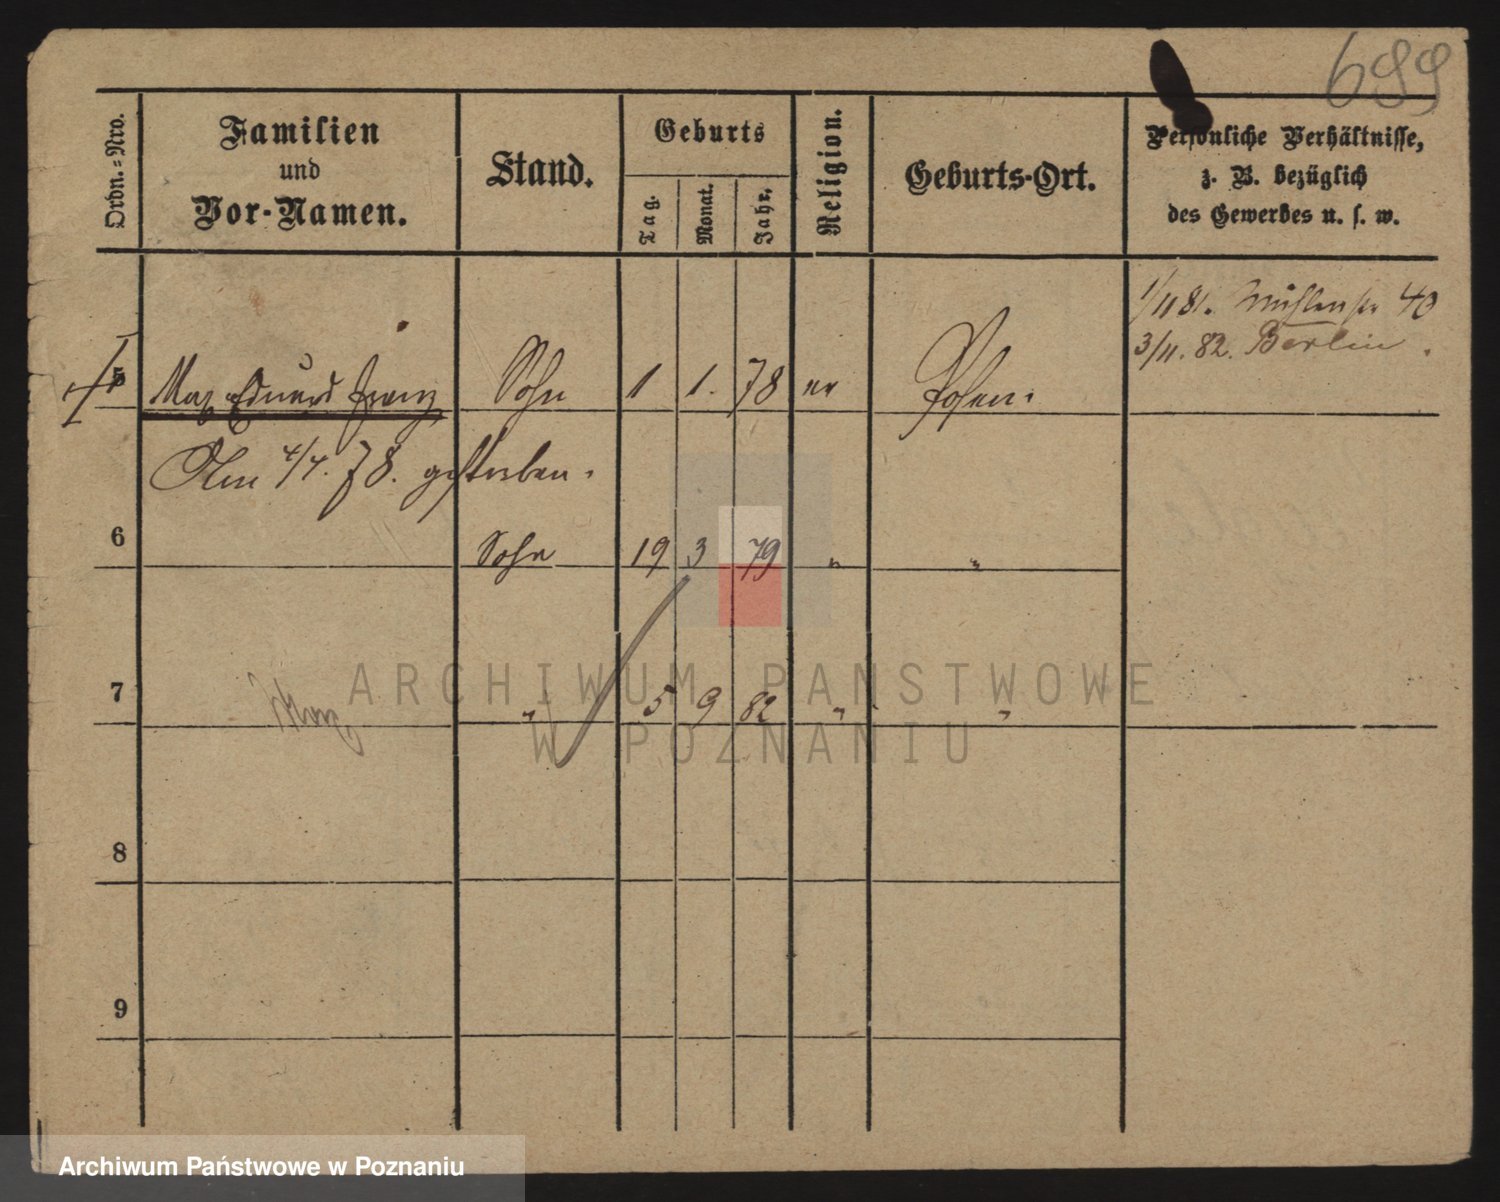 699
Ordn.=Nro.
Familien
und
Vor-Namen.
Stand.
Geburts
Tag.
Monat.
Jahr.
Religion.
Geburts-Ort.
Persönliche Verhältnisse,
z. B. bezüglich
des Gewerbes u. s. w.
1/11 81. Mühlenstr 40
3/11. 82. Berlin.
5 Max Eduard Franz Sohn 1 1. 78 ev Posen.
Am 4/4. 78. gestorben.
6 Sohn 19 3 79 " "
7 " 5 9 82 " "
8
9
ARCHIWUM PAŃSTWOWE
W POZNANIU
Archiwum Państwowe w Poznaniu